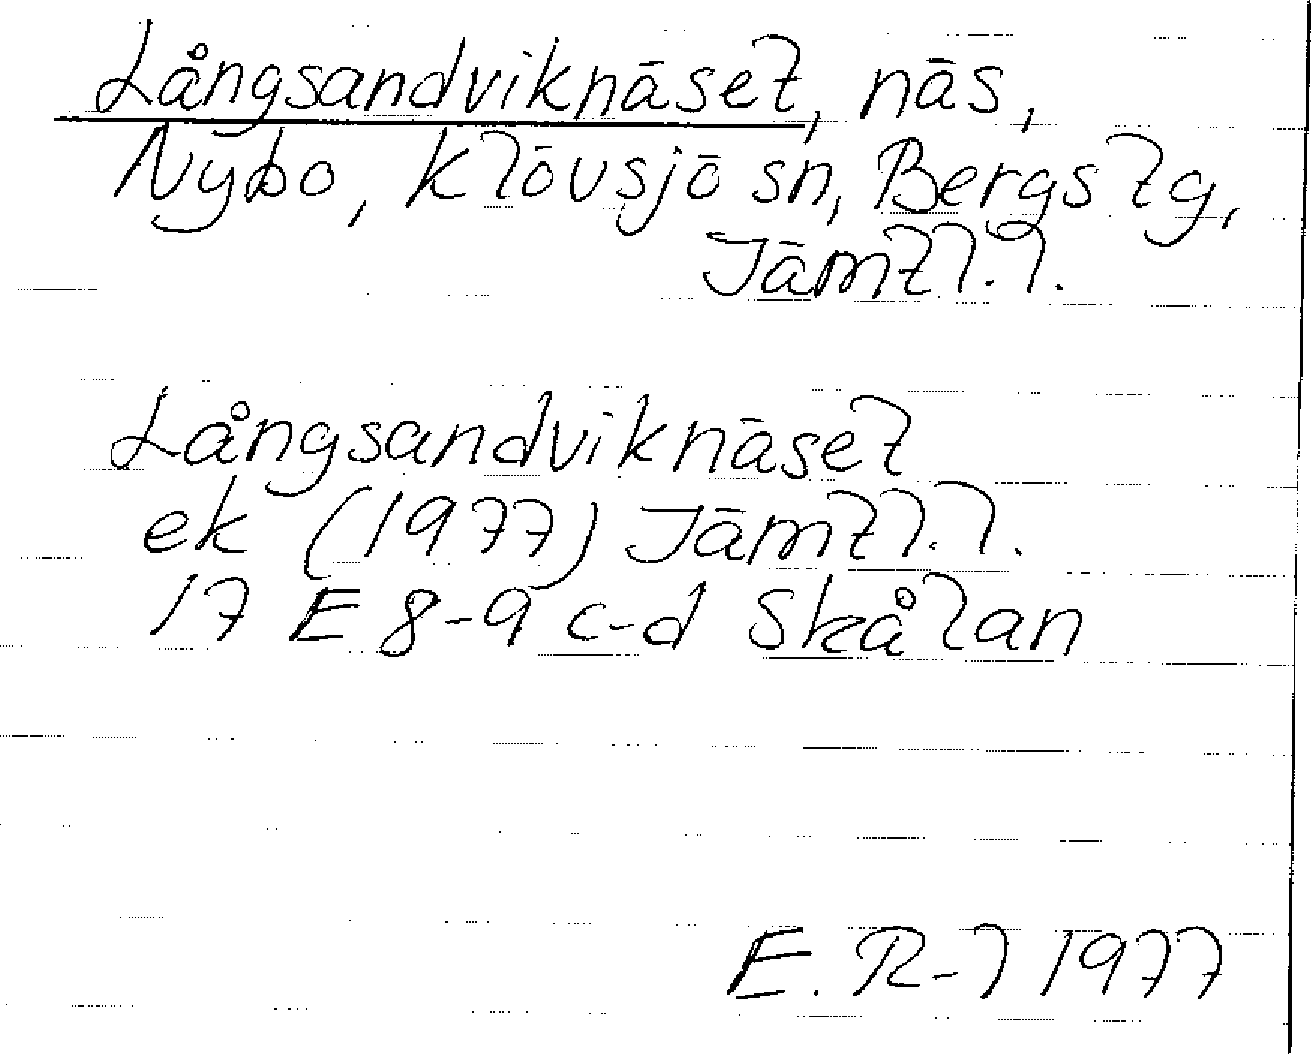 Långsandviknäset, näs,
Nybo, Klövsjö sn, Bergs tg,
Jämtl. l.
Långsandviknäset
ek (1977) Jämtl. l.
17 E 8-9 c-d Skålan
E. R-l 1977